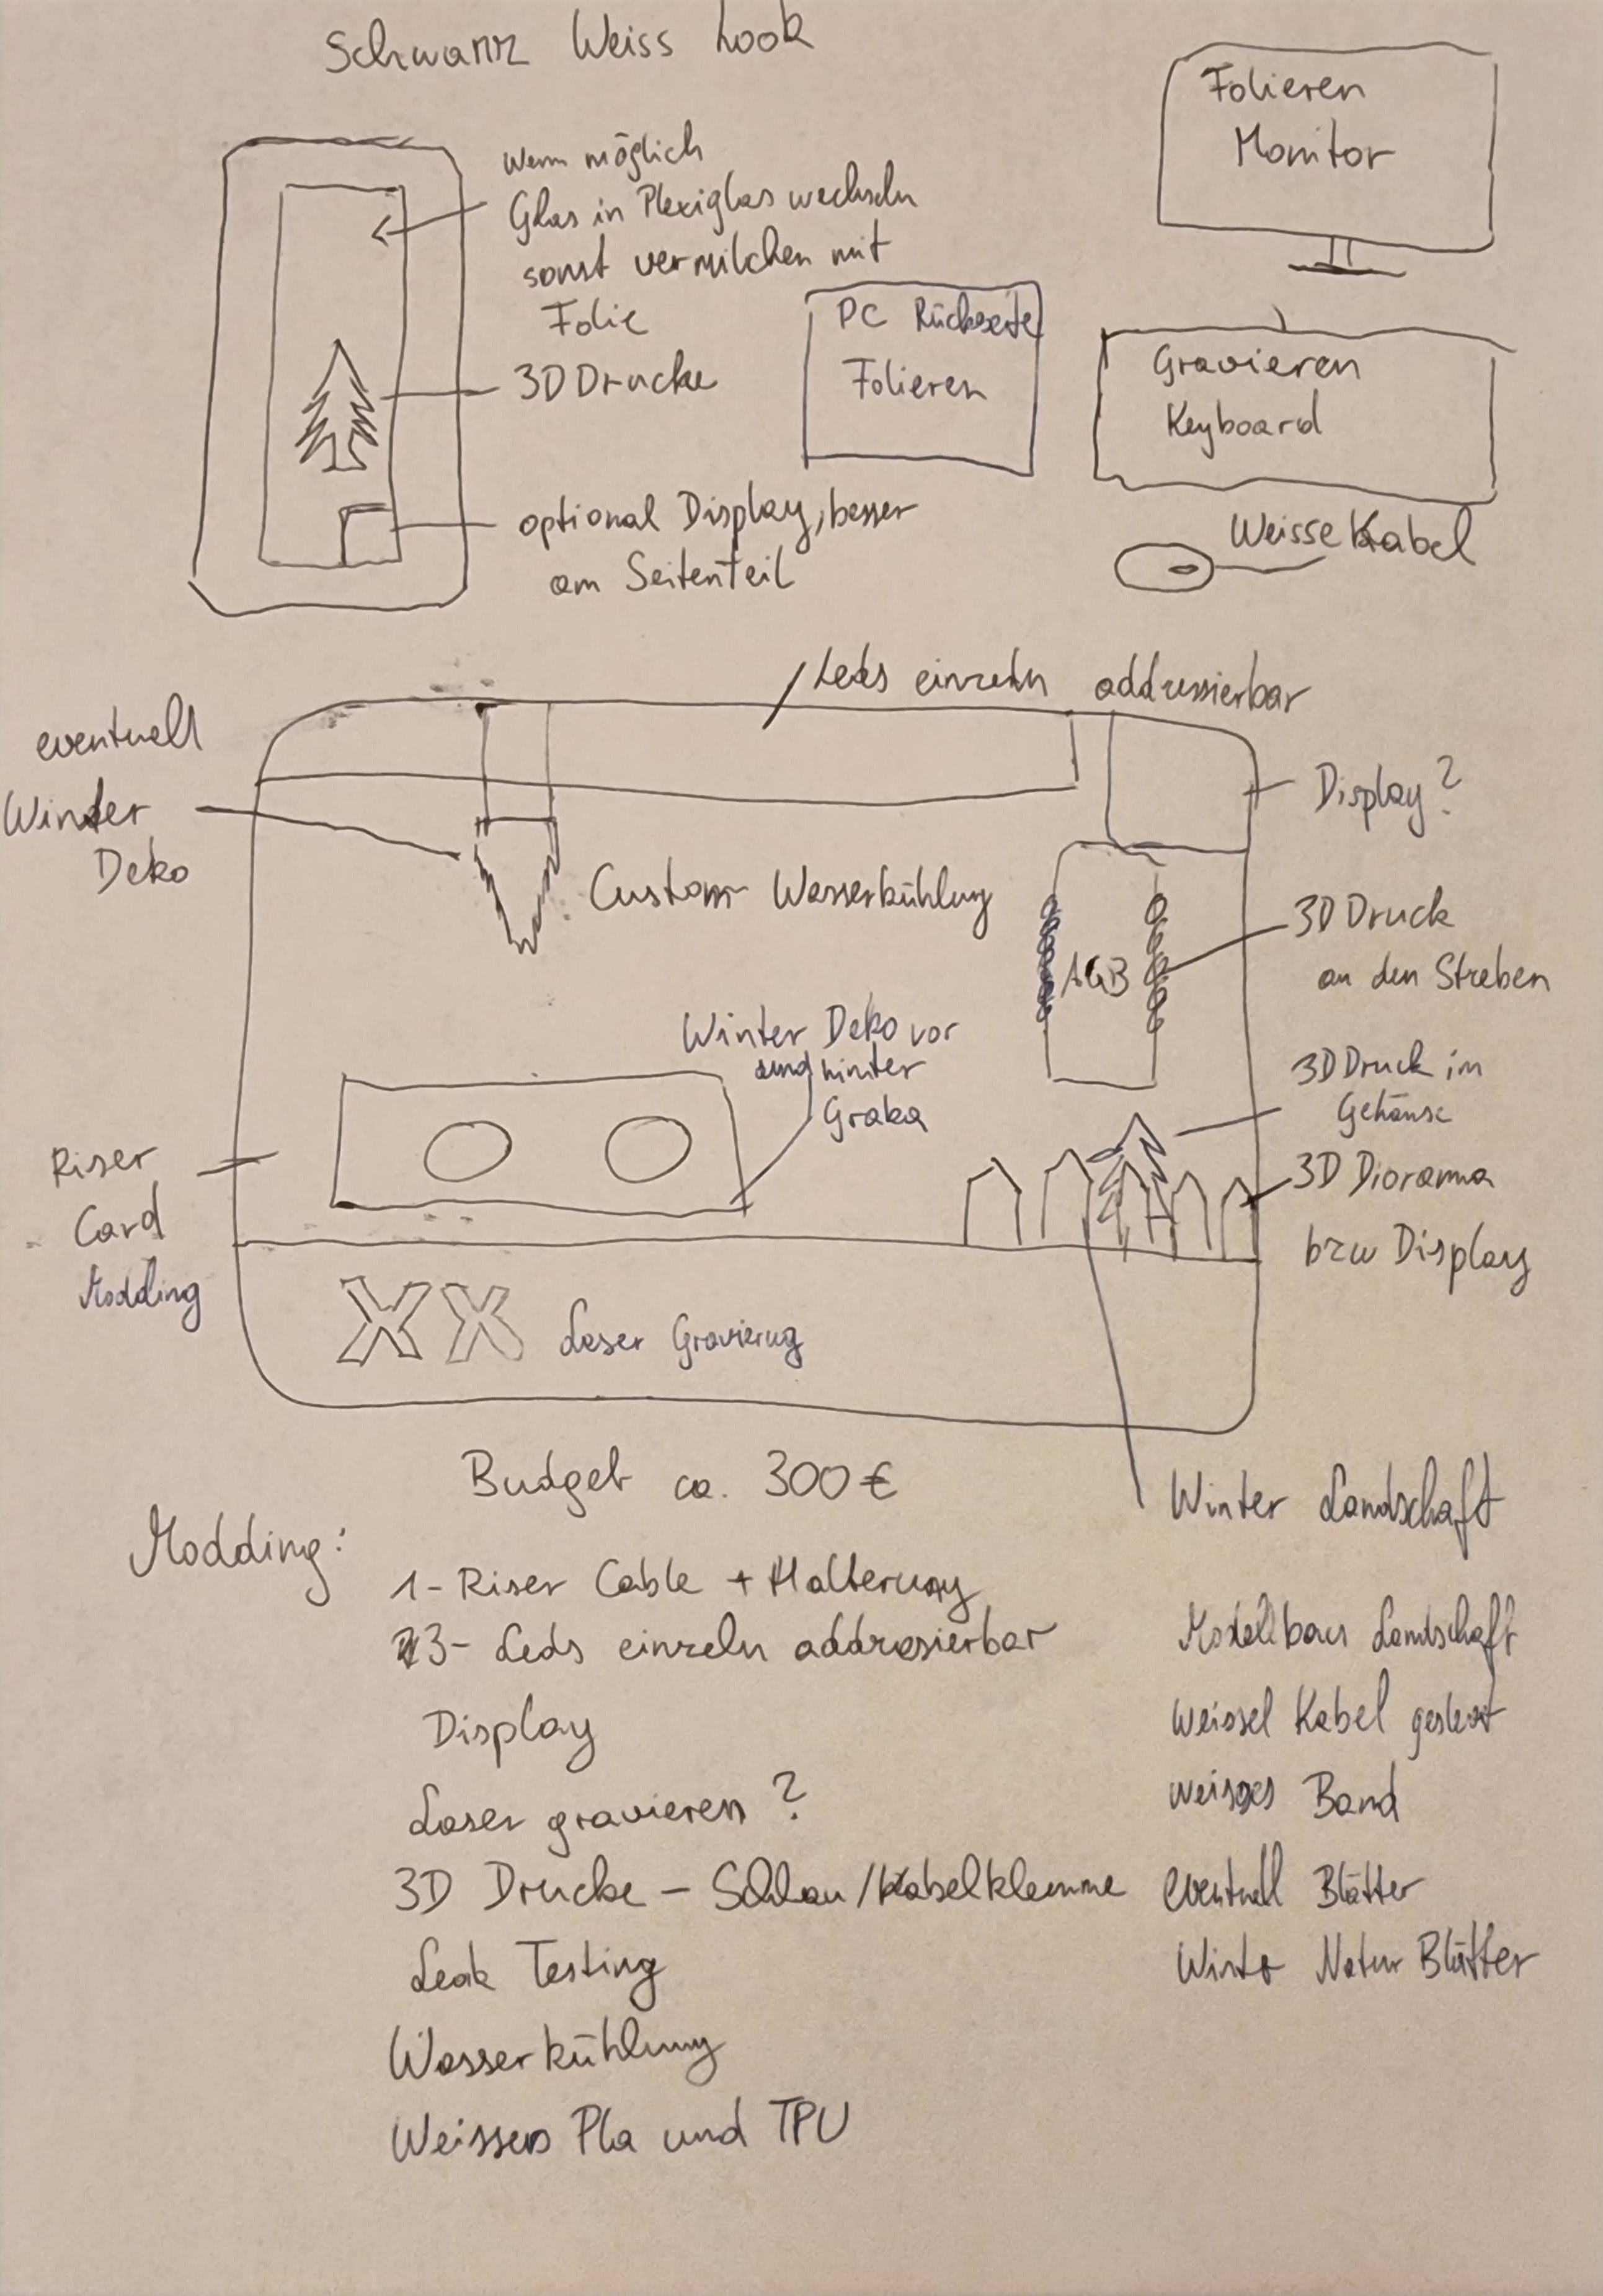 Schwarz Weiss Look
Wenn möglich
Glas in Plexiglas wechseln
sonst vermilchen mit
Folie
3D Drucke
optional Display, besser
am Seitenteil
PC Rückseite
Folieren
Folieren
Monitor
Gravieren
Keyboard
Weisse Kabel
Leds einzeln addressierbar
eventuell
Winter
Deko
Display?
Custom Wasserkühlung
3D Druck
an den Streben
AGB
Winter Deko vor
und hinter
Graka
3D Druck im
Gehäuse
3D Diorama
bzw Display
Riser
Card
Modding
XX Laser Gravierug
Budget ca. 300€
Winter Landschaft
Modding:
1- Riser Cable + Halterung
3- Leds einzeln addresierbar
Display
Laser gravieren?
3D Drucke - Schlau/Kabelklemme
Leak Testing
Wasserkühlung
Weisses Pla und TPU
Modellbau Landschaft
Weissel Kabel
weisses Band
eventuell Blätter
Winter Natur Blätter